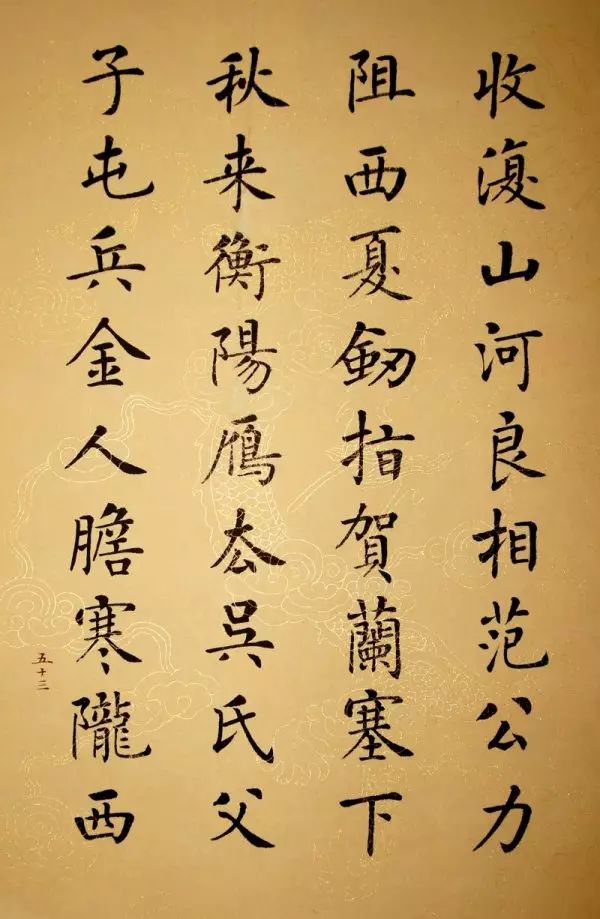 收復山河良相范公力
阻西夏釼指賀蘭塞下
秋来衡陽鴈厺吳氏父
子屯兵金人膽寒隴西
五十三